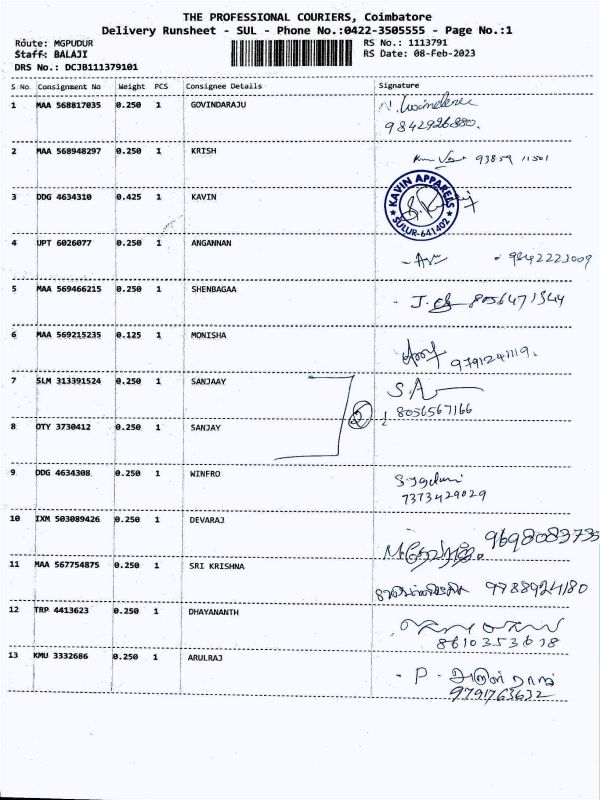 THE PROFESSIONAL COURIERS, Coimbatore
Delivery Runsheet - SUL - Phone No.:0422-3505555 - Page No.:1
Route: MGPUDUR
Staff: BALAJI
DRS No.: DCJB111379101
RS No.: 1113791
RS Date: 08-Feb-2023
S No. Consignment No Weight PCS Consignee Details Signature
1 MAA 568817035 0.250 1 GOVINDARAJU
9842926880.
2 MAA 568948297 0.250 1 KRISH 93859 11501
3 DDG 4634310 0.425 1 KAVIN
KAVIN APPARELS
SULUR-641402
4 UPT 6026077 0.250 1 ANGANNAN
9842223009
5 MAA 569466215 0.250 1 SHENBAGAA
8056471344
6 MAA 569215235 0.125 1 MONISHA
9791241119.
7 SLM 313391524 0.250 1 SANJAAY
8056567166
2
8 OTY 3730412 0.250 1 SANJAY
9 DDG 4634308 0.250 1 WINFRO
7373429029
10 IXM 503089426 0.250 1 DEVARAJ
9698083735
11 MAA 567754875 0.250 1 SRI KRISHNA
9788924180
12 TRP 4413623 0.250 1 DHAYANANTH
8610353618
13 KMU 3332686 0.250 1 ARULRAJ
P. அருள் ராஜ்
9791763632